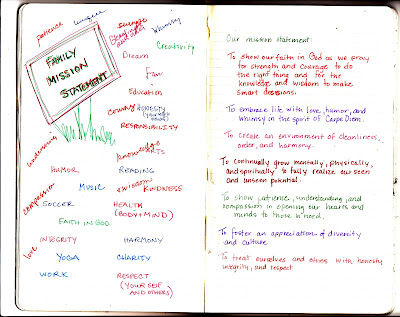 patience
unique
courage
Creativity
Whimsy
FAMILY
MISSION
STATEMENT
Dream
Fun
Education
HONESTY
RESPONSIBILITY
understanding
knowledge
ARTS
HUMOR
READING
compassion
MUSIC
wisdom
KINDNESS
SOCCER
HEALTH
(BODY + MIND)
FAITH IN GOD
INTEGRITY
HARMONY
love
YOGA
CHARITY
WORK
RESPECT
(YOUR SELF
AND OTHERS)
Our mission statement:
To show our faith in God as we pray
for strength and courage to do
the right thing and for the
knowledge and wisdom to make
smart decisions.
To embrace life with love, humor, and
whimsy in the spirit of Carpe Diem.
To create an environment of cleanliness,
order, and harmony.
To continually grow mentally, physically,
and spiritually to fully realize our seen
and unseen potential.
To show patience, understanding, and
compassion in opening our hearts and
minds to those in need.
To foster an appreciation of diversity
and culture.
To treat ourselves and others with honesty
integrity, and respect